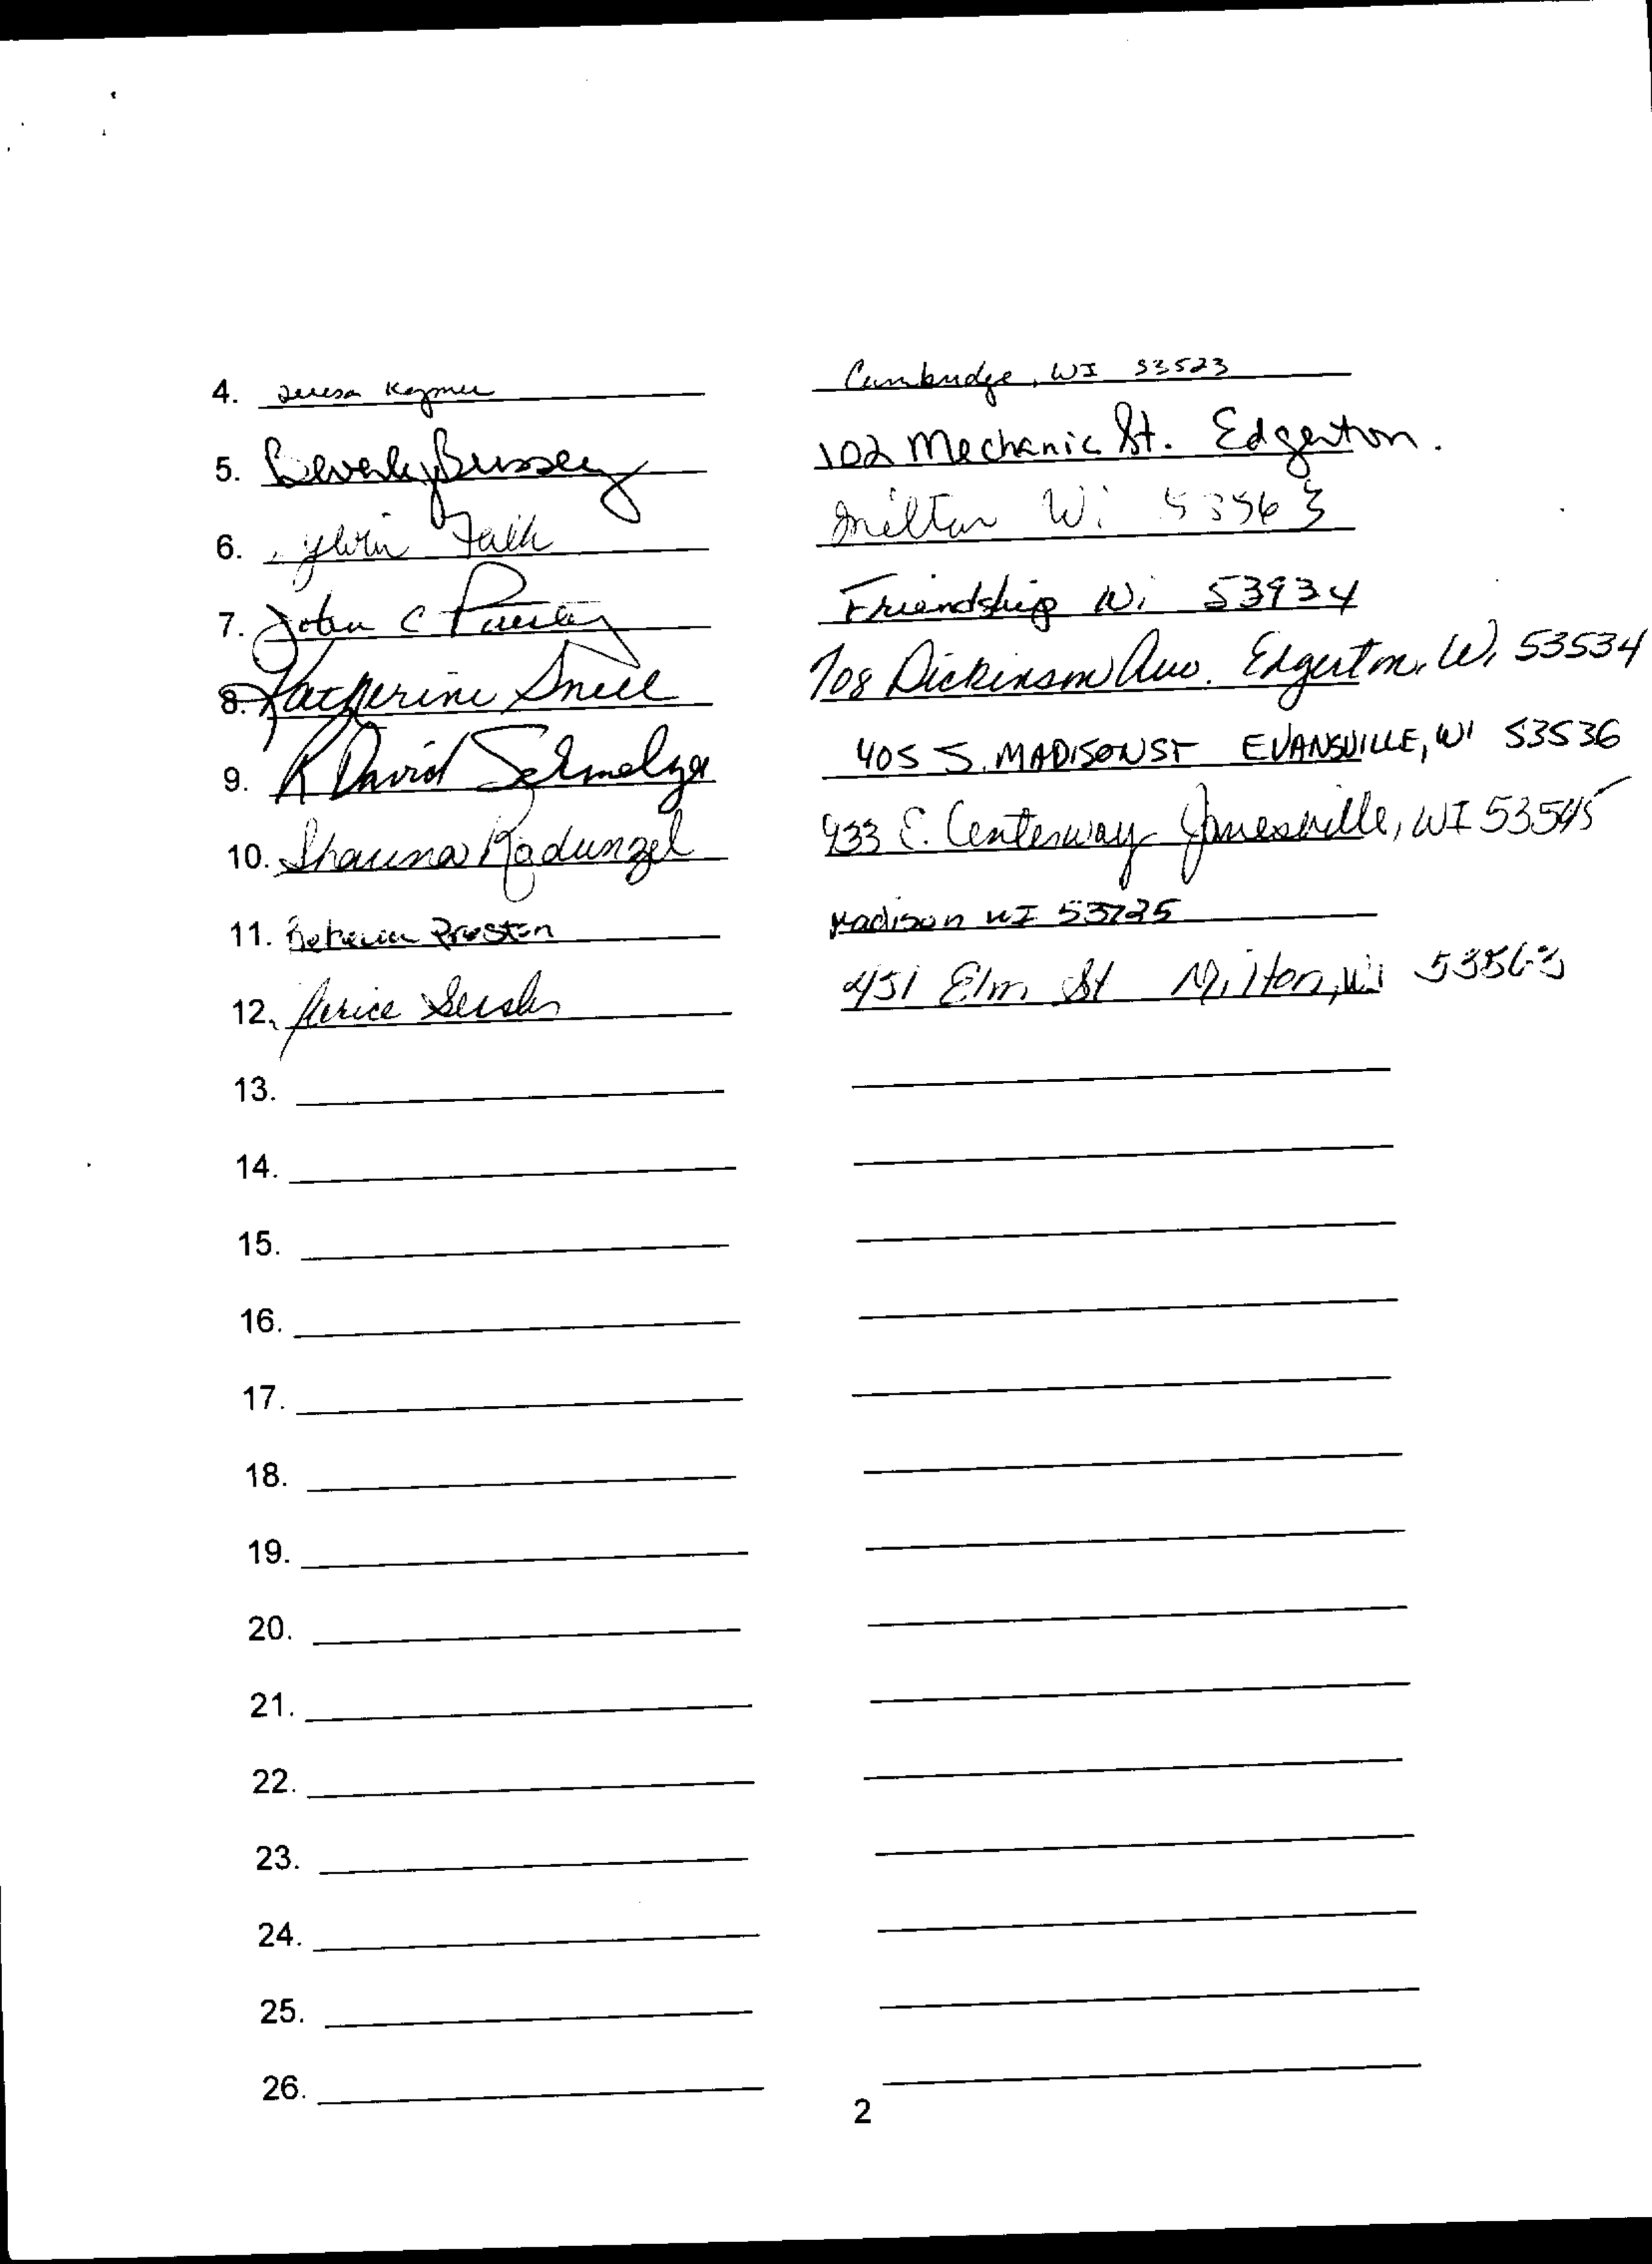 4. Teresa Kaymer Cambridge, WI 53523
5. Beverly Bussey 102 Mechanic St. Edgerton.
6. Falk Milton Wi 53563
7. John C Friendship Wi 53934
8. Katherine Snell 708 Dickinson Ave. Edgerton, Wi 53534
9. R David Schmelzer 405 S. MADISON ST EVANSVILLE, WI 53536
10. Shauna Radunzel 933 E. Centerway Janesville, WI 53545
11. Preston Madison WI 53725
12. 451 Elm St Milton, Wi 53563
13.
14.
15.
16.
17.
18.
19.
20.
21.
22.
23.
24.
25.
26.
2